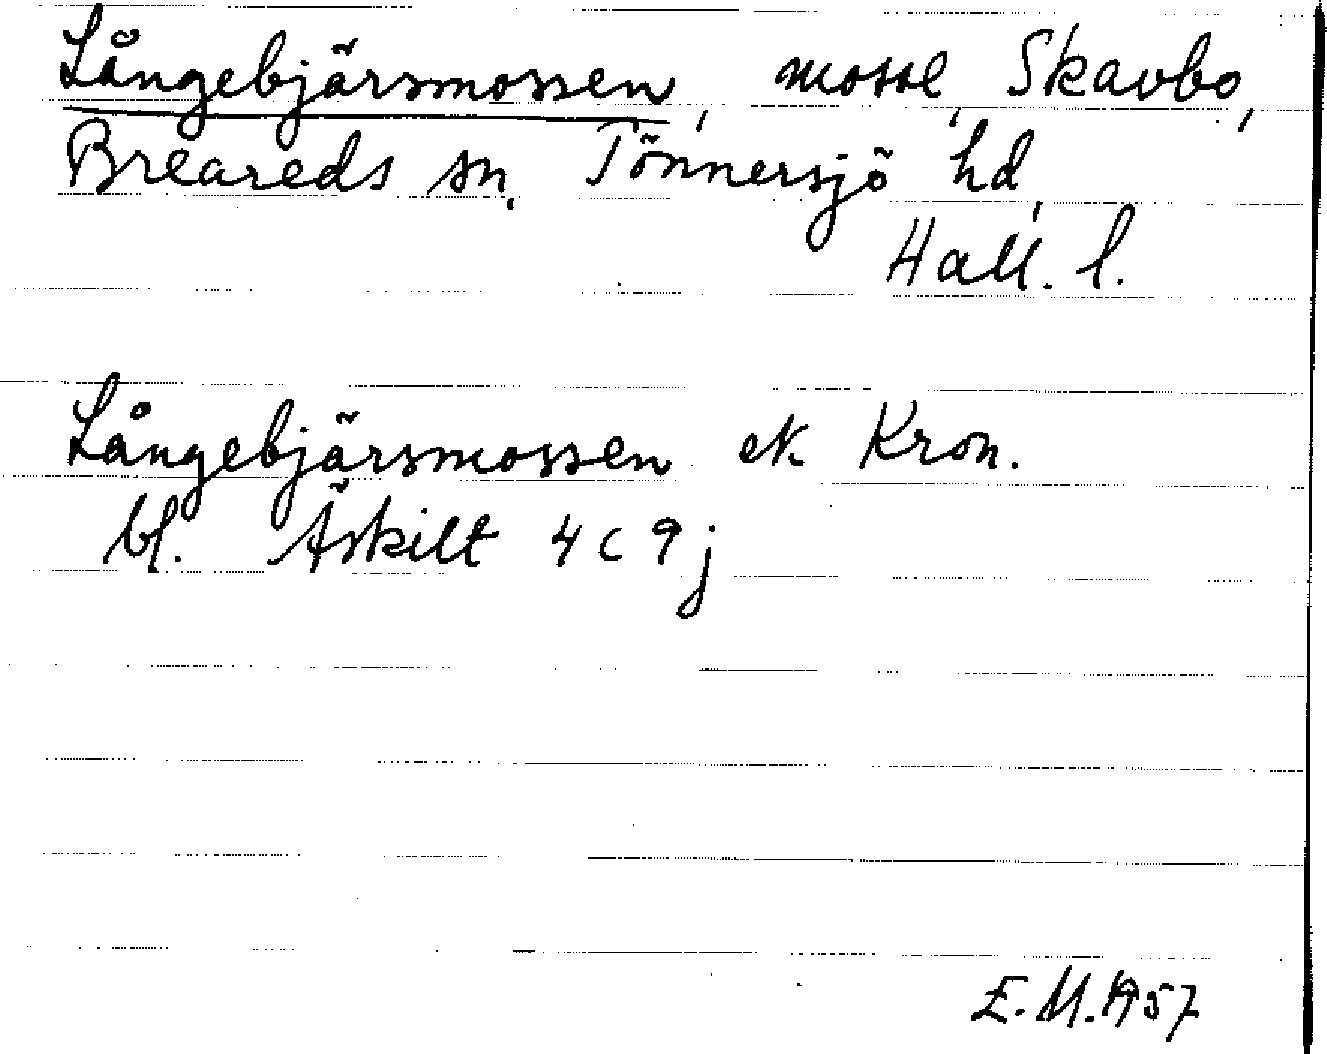 Långebjärsmossen, mosse, Skavbo,
Breareds sn, Tönnersjö hd,
Hall. l.
Långebjärsmossen ek Kron.
bl. Äskilt 4 c 9 j
E.M. 1957